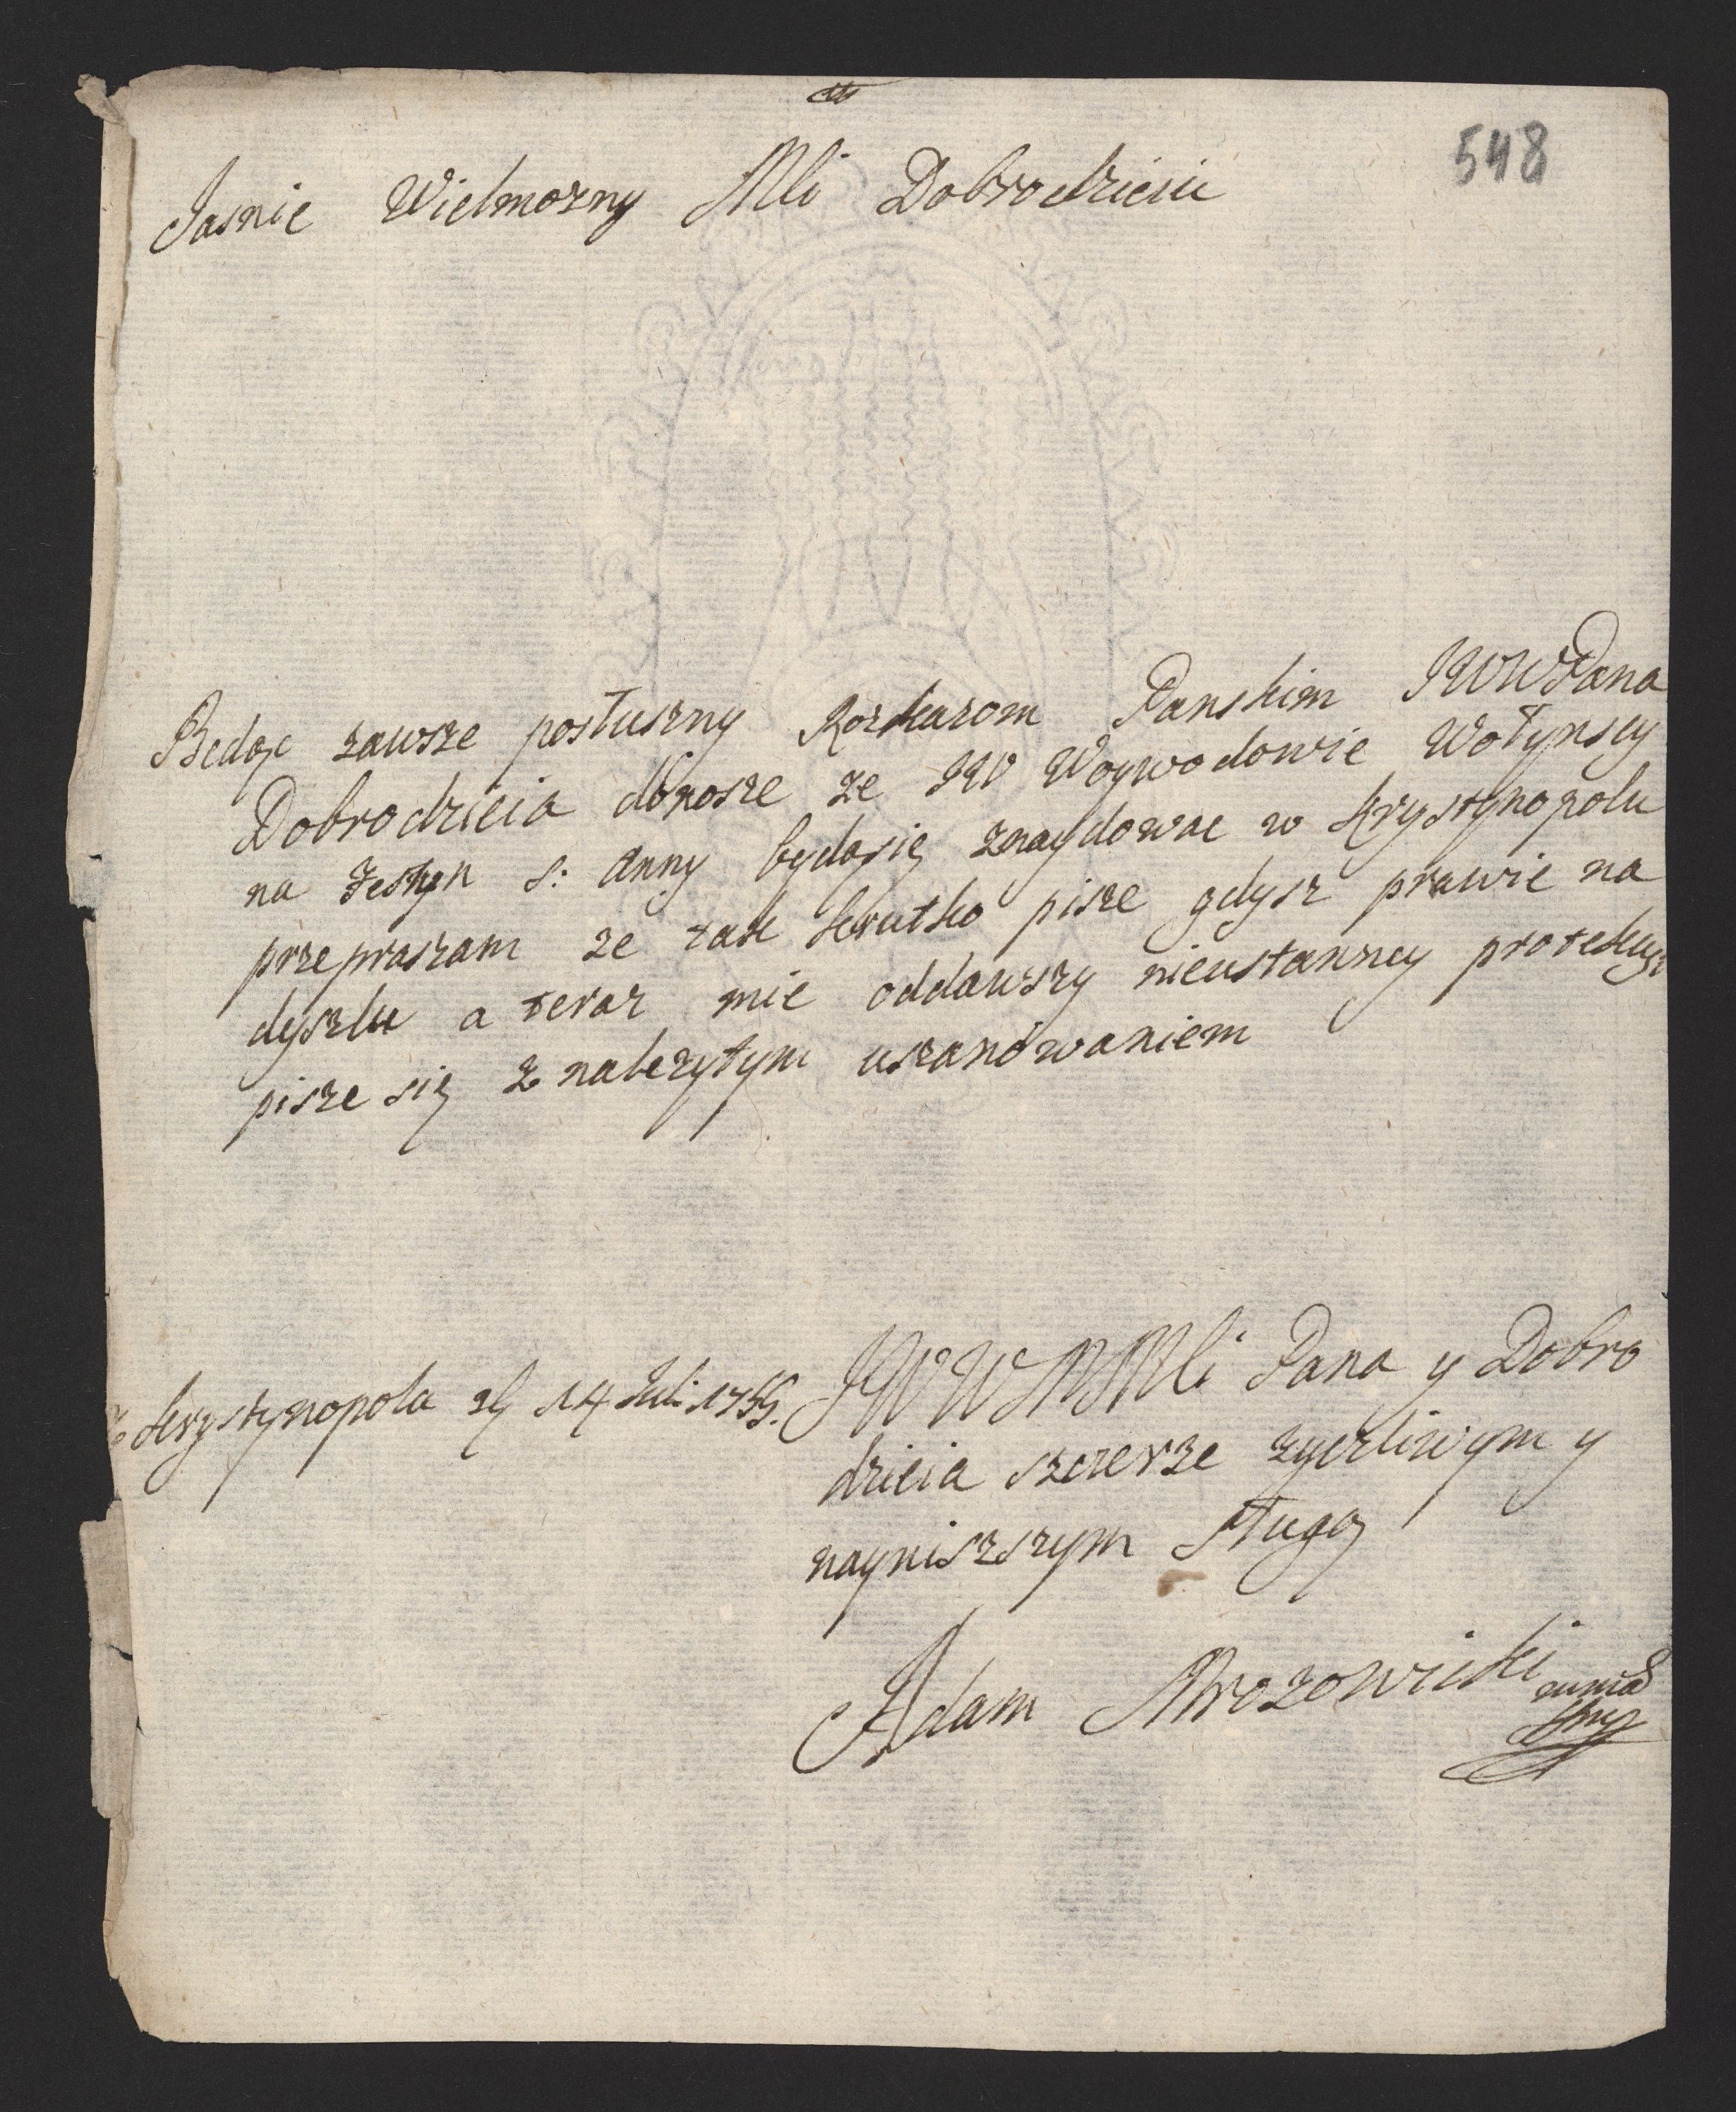 548
Jasnie Wielmozny Mci Dobrodzieiu
Bedąc zawsze posłuszny Rozkazom Panskim JWWPana
Dobrodzieia donosze ze JW Woywodowie Wołynscy
na festyn s: Anny będąsię znaydowac w Krystynopolu
przepraszam ze tak krutko pisze gdysz prawie na
dyszlu a teraz mie oddawszy nieustanney protekcyi
pisze się z nalezytym uszanowaniem
z Krystynopola 14 Juli
JWWMMci Pana y Dobro
dzieia szczerze zyczliwym y
nayniszszym sługą
Adam Mrozowicki